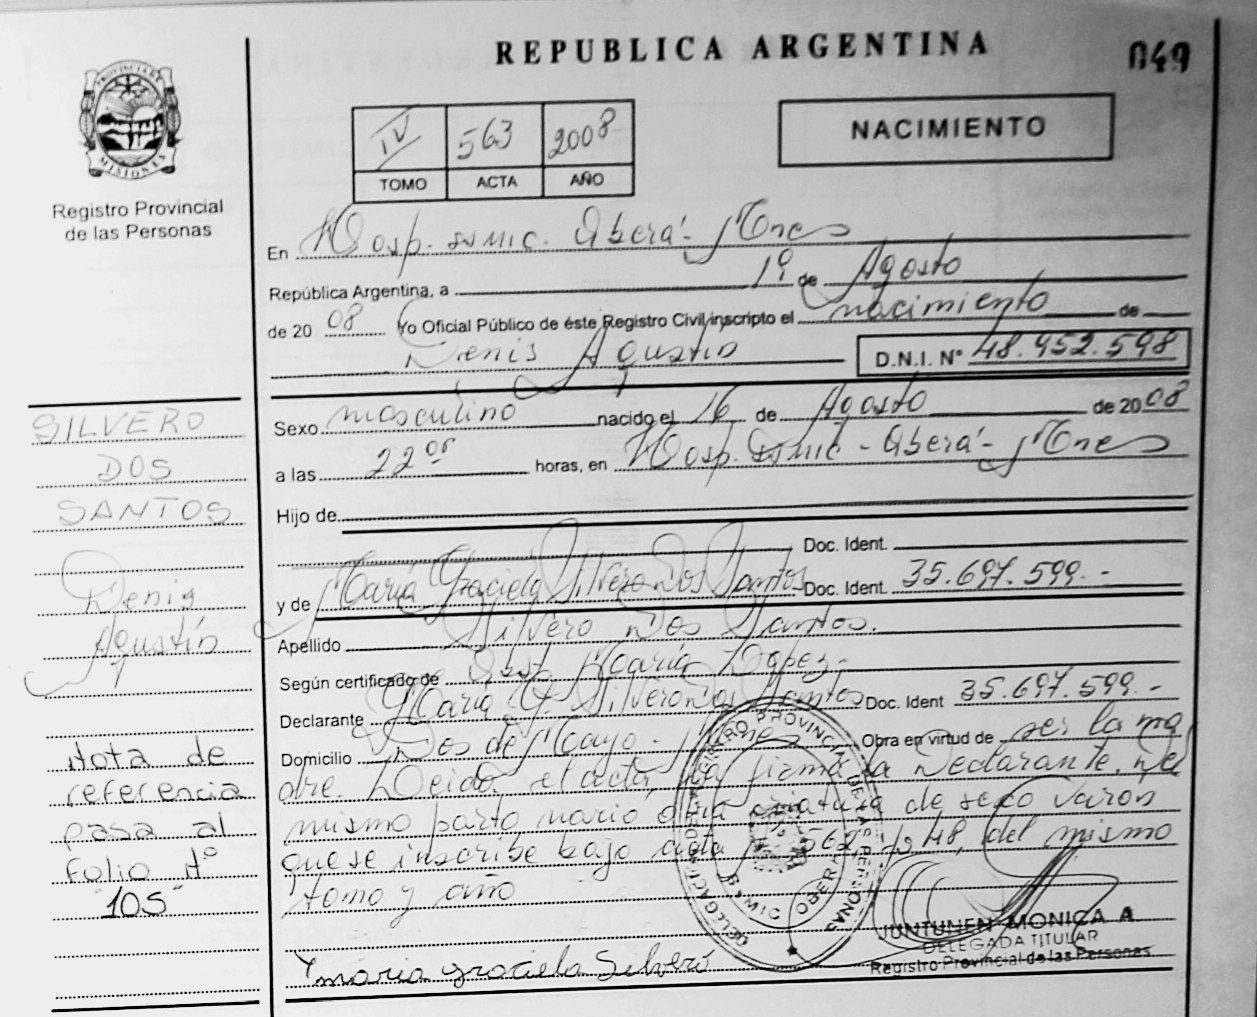 REPUBLICA ARGENTINA
049
PROVINCIA DE MISIONES
Registro Provincial
de las Personas
IV 563 2008
TOMO ACTA AÑO
NACIMIENTO
En Hosp. SAMIC. Oberá - Mnes
República Argentina, a 19 de Agosto
de 20 08 Yo Oficial Público de éste Registro Civil inscripto el nacimiento de
Denis Agustín D.N.I. N° 48.952.598
Sexo masculino nacido el 16 de Agosto de 20 08
a las 22 05 horas, en Hosp. SAMIC - Oberá - Mnes
Hijo de
Doc. Ident.
y de María Graciela Silvero Dos Santos Doc. Ident. 35.697.599.-
Apellido Silvero Dos Santos.
Según certificado de Obst. María López-
Declarante María G. Silvero Dos Santos Doc. Ident 35.697.599.-
Domicilio Dos de Mayo - Mnes Obra en virtud de ser la ma
dre. Leída el acta, la firma la Declarante. Del
mismo parto nació otra criatura de sexo varón
que se inscribe bajo acta 562, 48, del mismo
tomo y año
María Graciela Silvero
SILVERO
DOS
SANTOS
Denis
Agustín
Nota de
referencia
pasa al
Folio Nº
"105"
DELEGACION REGISTRO PROVINCIAL DE LAS PERSONAS
SAMIC OBERA
JUNTUNEN MONICA A
DELEGADA TITULAR
Registro Provincial de las Personas